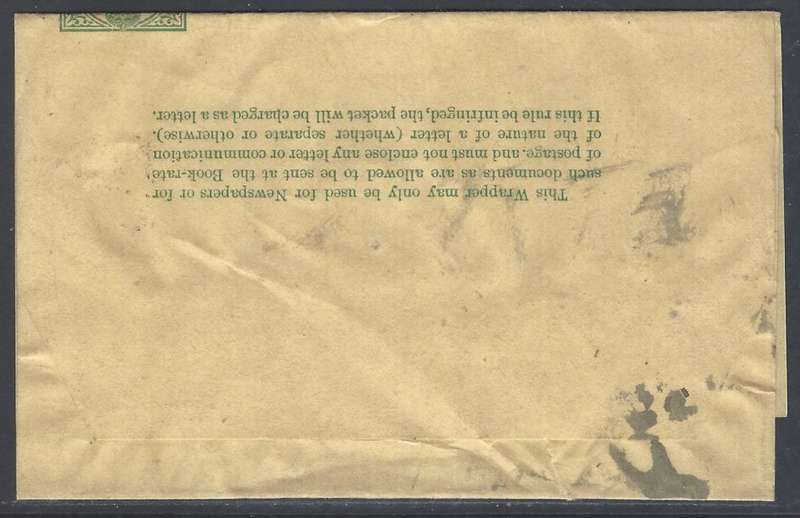 This Wrapper may only be used for Newspapers or for
such documents as are allowed to be sent at the Book-rate
of postage. and must not enclose any letter or communication
of the nature of a letter (whether separate or otherwise).
If this rule be infringed, the packet will be charged as a letter.